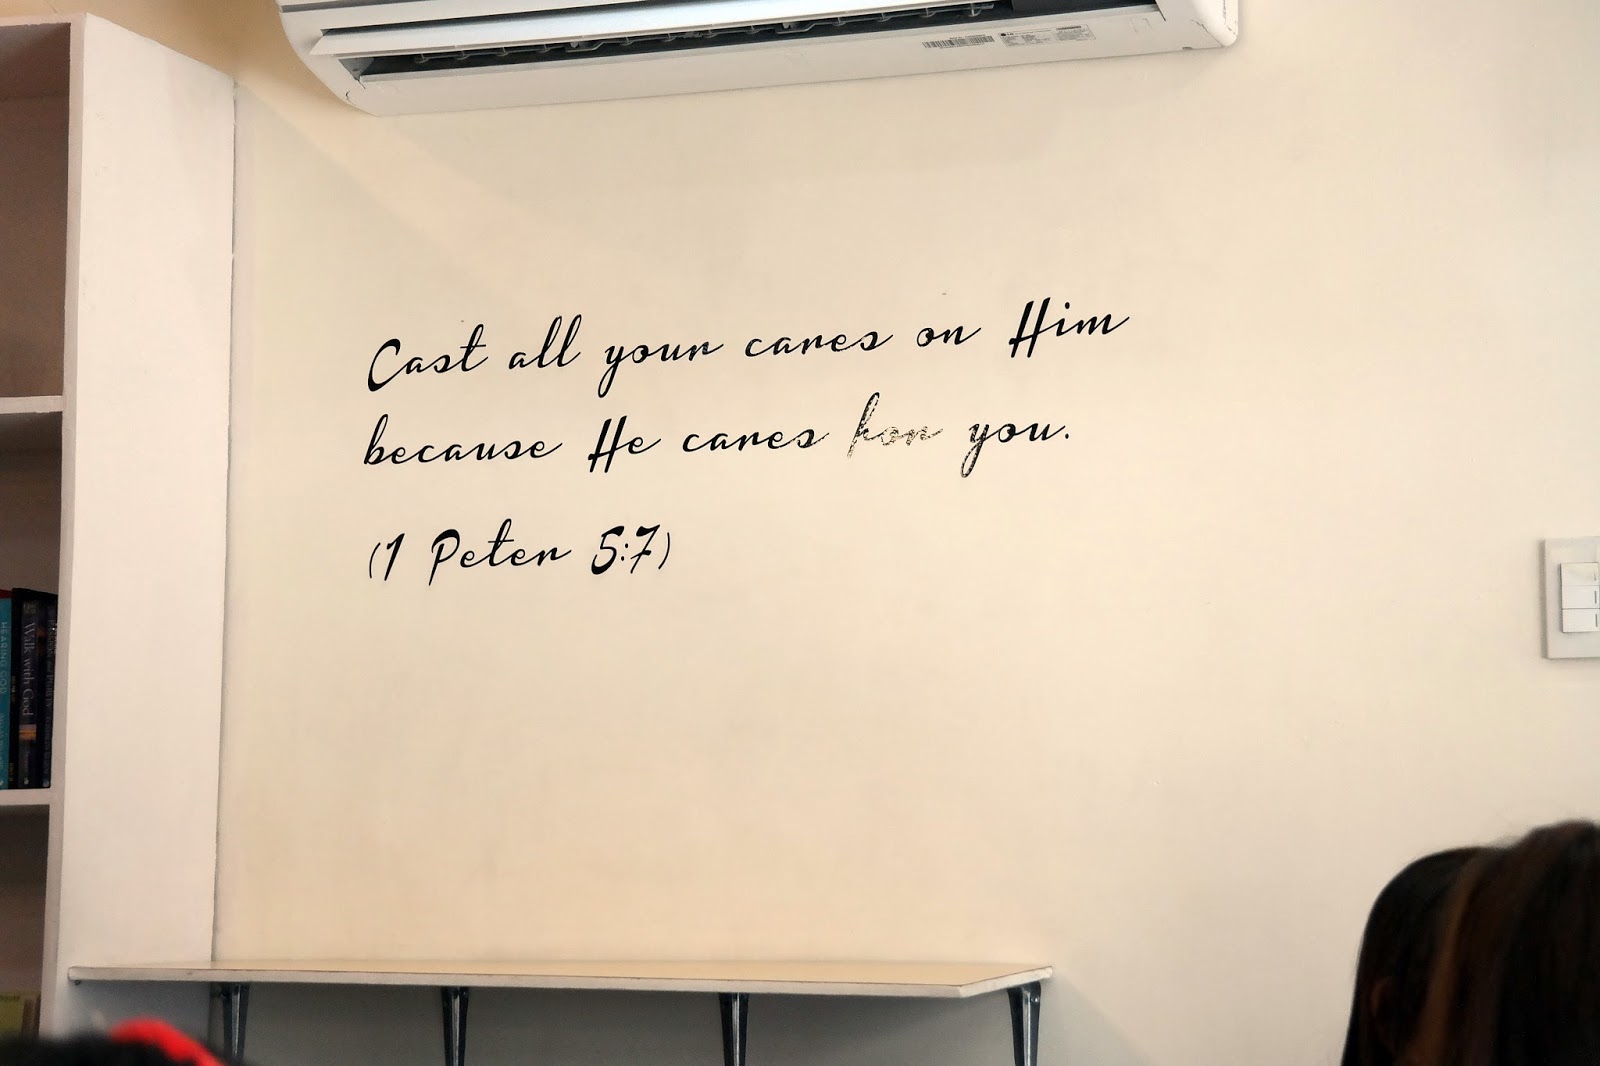 Cast all your cares on Him
because He cares for you.
(1 Peter 5:7)
HEARING GOD
Walk with God